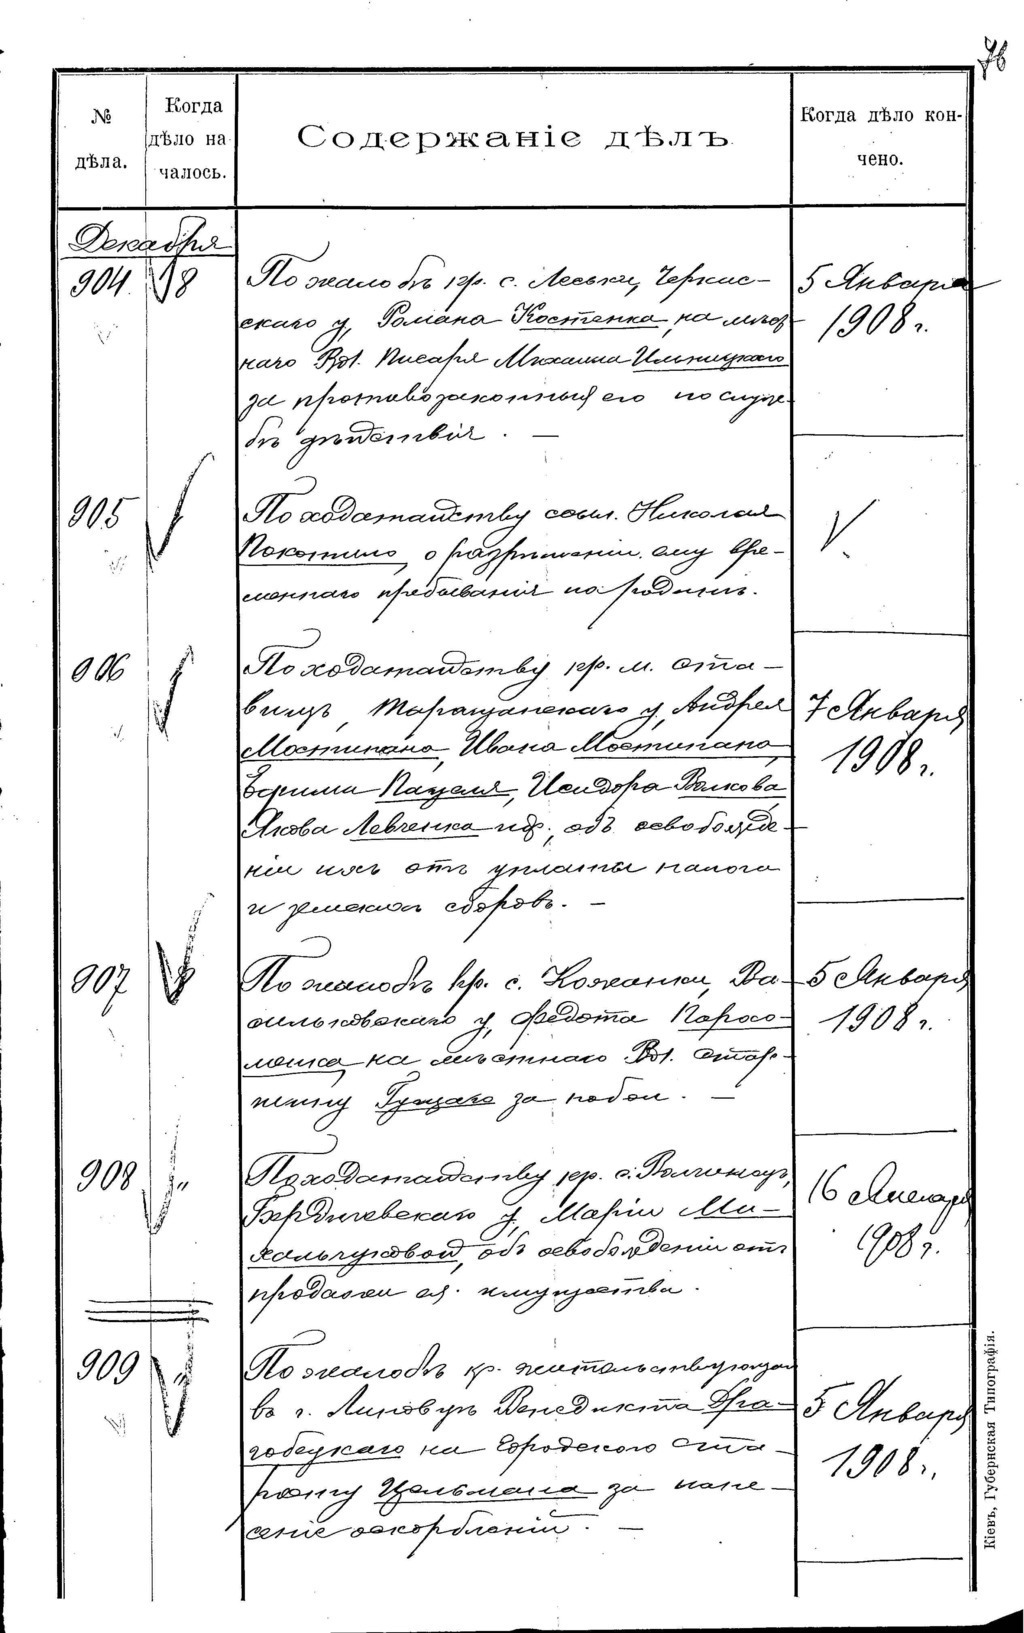 76
№ дѣла.
Когда дѣло началось.
Содержаніе дѣлъ
Когда дѣло кончено.
Декабря
904 18 По жалобѣ кр. с. Леськи, Черкас-
скаго у, Романа Костенка, на мѣст-
наго Вол. Писаря Михаила Ильницкаго
за противозаконныя его по служ-
бѣ дѣйствія. —
5 Января
1908 г.
905 По ходатайству ссыл. Николая
Покотило, о разрѣшеніи ему вре-
меннаго пребыванія на родинѣ.
906 По ходатайству кр. м. Ста-
вищъ, Таращанскаго у, Андрея
Мостипана, Ивана Мостипана,
Евфима Пацеля, Исидора Волкова,
Якова Левченка и др., объ освобожде-
ніи ихъ отъ уплаты налога
и земскихъ сборовъ. —
7 Января
1908 г.
907 По жалобѣ кр. с. Кожанки, Ва-
сильковскаго у, Федота
на мѣстнаго Вол. Стар-
шину за побои. —
5 Января
1908 г.
908 „ По ходатайству кр. с. Волчинецъ,
Бердичевскаго у, Маріи Ми-
хальчуковой, объ освобожденіи отъ
продажи ея имущества.
16 Января
1908 г.
909 „ По жалобѣ кр. жительствующаго
въ г. Липовцѣ Венедикта Дра-
гобецкаго на Городского Ста-
росту Цельмана за нане-
сеніе оскорбленій. —
5 Января
1908 г.
Кіевъ, Губернская Типографія.